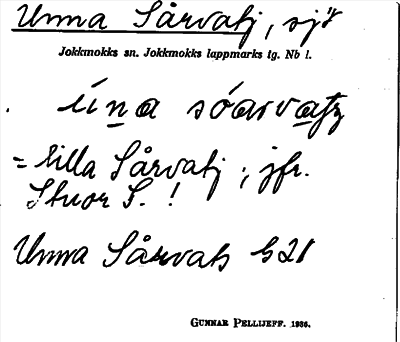 Unna Sårvatj, sjö
Jokkmokks sn. Jokkmokks lappmarks tg. Nb l.
úna sóarvatz
= lilla Sårvatj; jfr.
Stuor S. !
Unna Sårvats G21
GUNNAR PELLIJEFF. 1936.